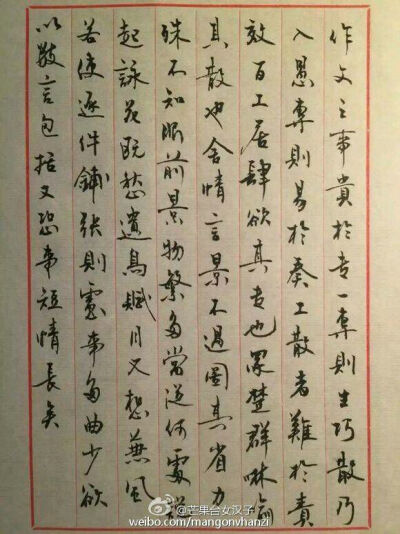 作文之事貴於专一專則生巧散乃
入愚專則易於奏工散者難於責
效百工居肆欲其专也眾楚群咻喻
其散也舍情言景不過圖其省力
殊不知眼前景物繁多當從何處說
起詠花既愁遺鳥賦月又想兼風
若使逐件鋪張則慮事多曲少欲
以數言包括又恐事短情長矣
@芒果台女汉子
weibo.com/mangonvhanzi